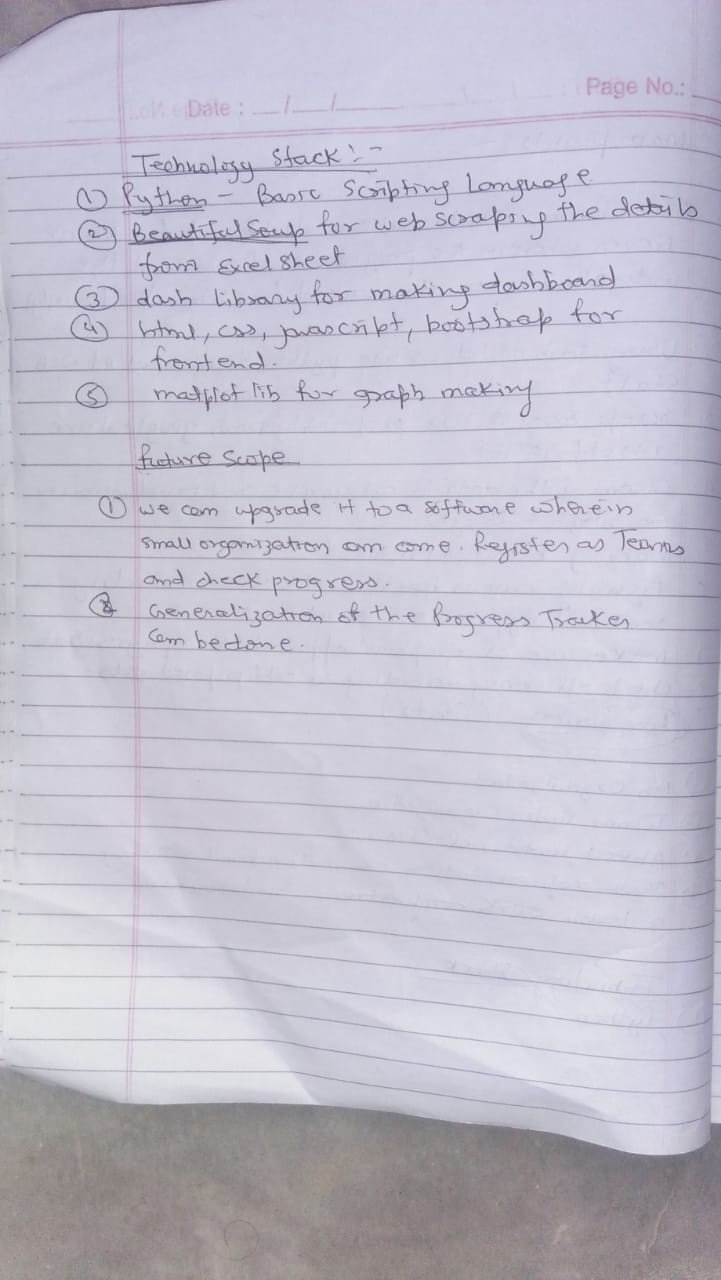 Page No.:
Date : __/__/____
Technology Stack :-
① Python - Basic Scripting Language
② Beautiful Soup for web scraping the details
from Excel sheet
③ dash library for making dashboard
④ html, css, javascript, bootstrap for
frontend.
⑤ matplot lib for graph making
future scope
① we can upgrade it to a software wherein
small organization can come. Register as Teams
and check progress.
② Generalization of the Progress Tracker
can be done.